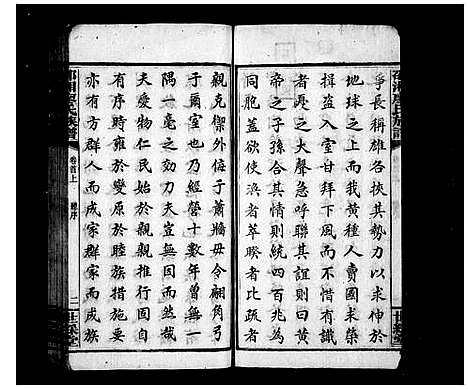 爭長稱雄各挾其勢力以求伸於
地球之上而我黃種人賣國求榮
揖盜入室甘拜下風而不惜有識
者憂之大聲急呼聯其誼則曰黃
帝之子孫合其情則統四百兆為
同胞蓋欲使渙者萃睽者比疏者
親克禦外侮于蕭牆毋令翩角弓
于爾室也乃經營十數年曾無一
隅一毫之効力夫豈無因而然哉
夫愛物仁民始於親親推行固自
有序時雍於變原於睦族措施要
亦有方群人而成家群家而成族
卷首上
總序
二
世綵堂